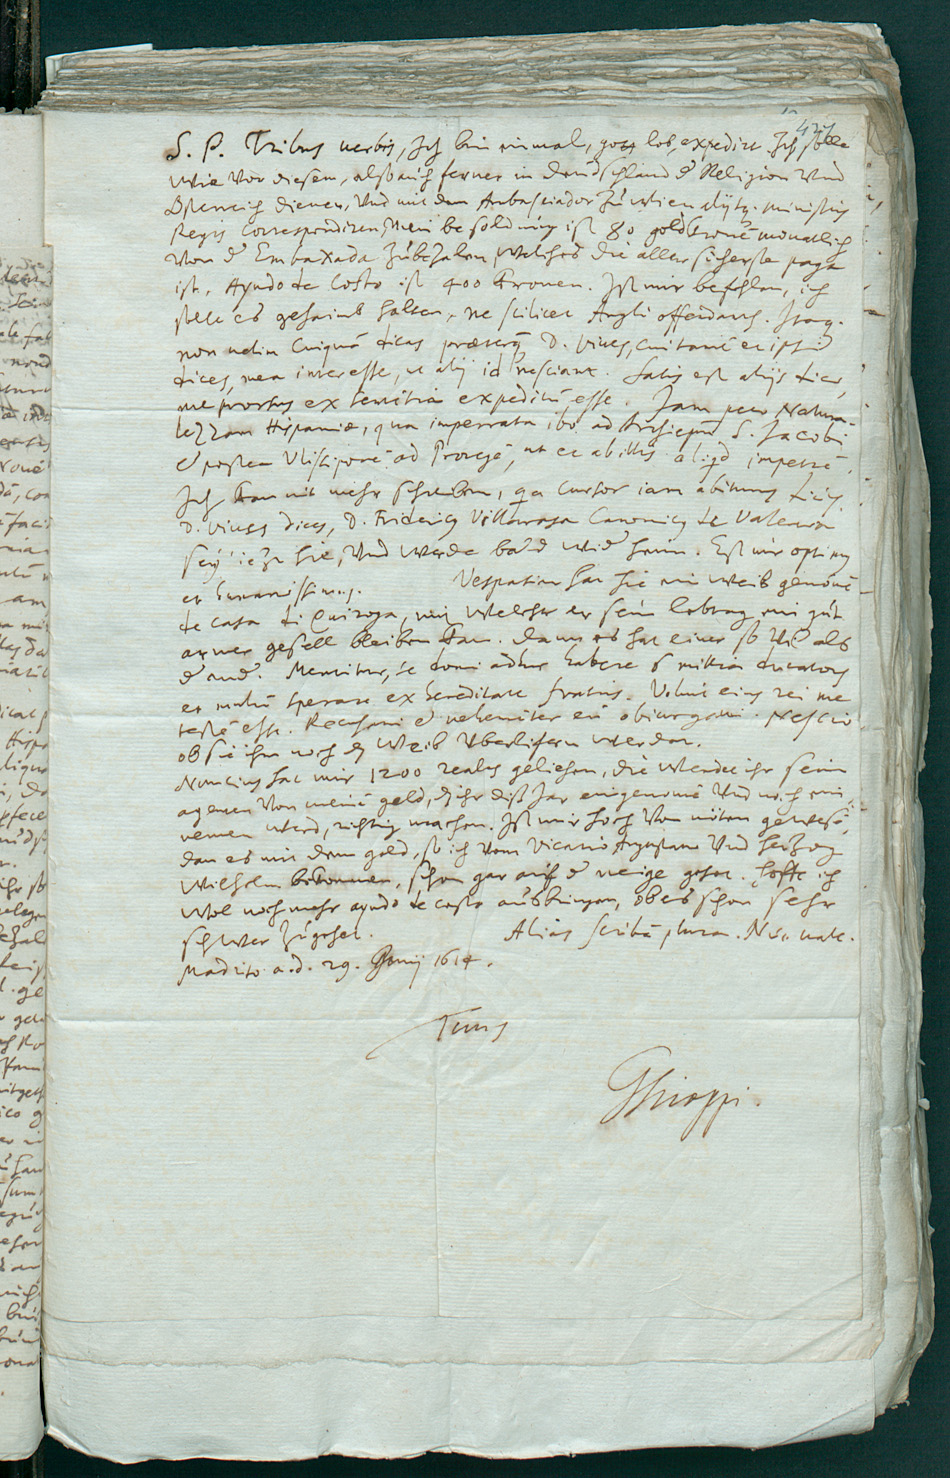 427
S. P. Tribus verbis, Ich bin einmal, gott lob, expedirt. Ich solle
wie vor diesem, also auch ferner in deudschland d Religion vnd
Osterreich dienen, vnd mit dem Anbasciador zu wien aliisq. ministris
Regis correspondiren, Mein besoldung ist 80 goldkronē monatlich
von d Embaxada zubezalen welches die aller sicherste paga
ist. Ayudo de costa ist 400 kronen. Ist mir befohlen, ich
solle es gehaimb halten, ne scilicet Angli offendant. Itaq.
non velim cuiquā dicas praeterq̃ D. Vives, cui tamē et ipsi
dices, mea interesse, ut alij id nesciant. Satis est alijs dicere,
me prorsus ex sententia expeditū esse. Jam peto Natura-
lezzam Hispaniae, qua impetrata ibo ad Archiepm̃ S. Jacobi
& postea Vlissiponē ad Proregē, ut et ab illis aliqd impetrē.
Ich kan nit mehr schreiben, qa cursor iam abiturus
D. Vives dices, D. Fridericus Villarasa Canonicus de Valencia
sey ietz hie, vnd werde bald wid heim. Est vir optimus
et humanissimus. Vespasian hat hie ein weib genomē
de casa di Quiroga, mit welcher er sein lebtag ein gut
armer gesell bleiben kan. dann es hat einer so vil als
d and. Mentitur, se domi adhuc habere 6 millia ducatorum
et multū sperare ex hereditate fratris. Voluit eius rei me
testē esse. Recusavi & vehemēter eū obiurgavi. Nescio
ob sie ihm noch dz weib vberlifern werden.
Nuncius hat mir 1200 reales gelihen, die werdet ihr seim
agenten von meinē geld, dz ihr diß Jar eingenomē vnd noch ein-
nemen werd, richtig machen. Ist mir hoch von nöten gewesē,
dan es mit dem geld, so ich vom Vicario Augustano vnd Hertzog
Wilhelm bekommen, schon gar auff d neige gehet. Hoffe ich
wol noch mehr ayudo de costa ausbringen, ob es schon sehr
schwer zugehet. Alias scribā plura. Nūc vale.
Madrito a.d. 29. Junij 1614.
Tuus
GScioppi.